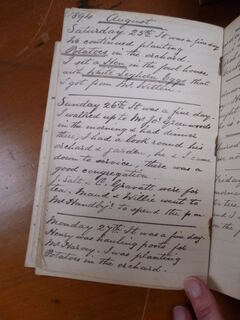 1894 August
Saturday 25th It was a fine day
We continued planting
Potatoes in the orchard.
I set a Hen in the fowl house
with White Leghorn Eggs that
I got from Mr. Willie
Sunday 26th It was a fine day.
I walked up to Mr Jos. Greenwoods
in the morning & had dinner
there, I had a look round his
orchard & garden, he & I came
down to service, there was a
good congregation
J. Salt & C. Gravatt were for
tea. Maud & Willie went to
Mr Handby's to spend the p.m.
Monday 27th It was a fine day
Henry was hauling posts for
Mr Harvey. I was planting
Potatoes in the orchard.